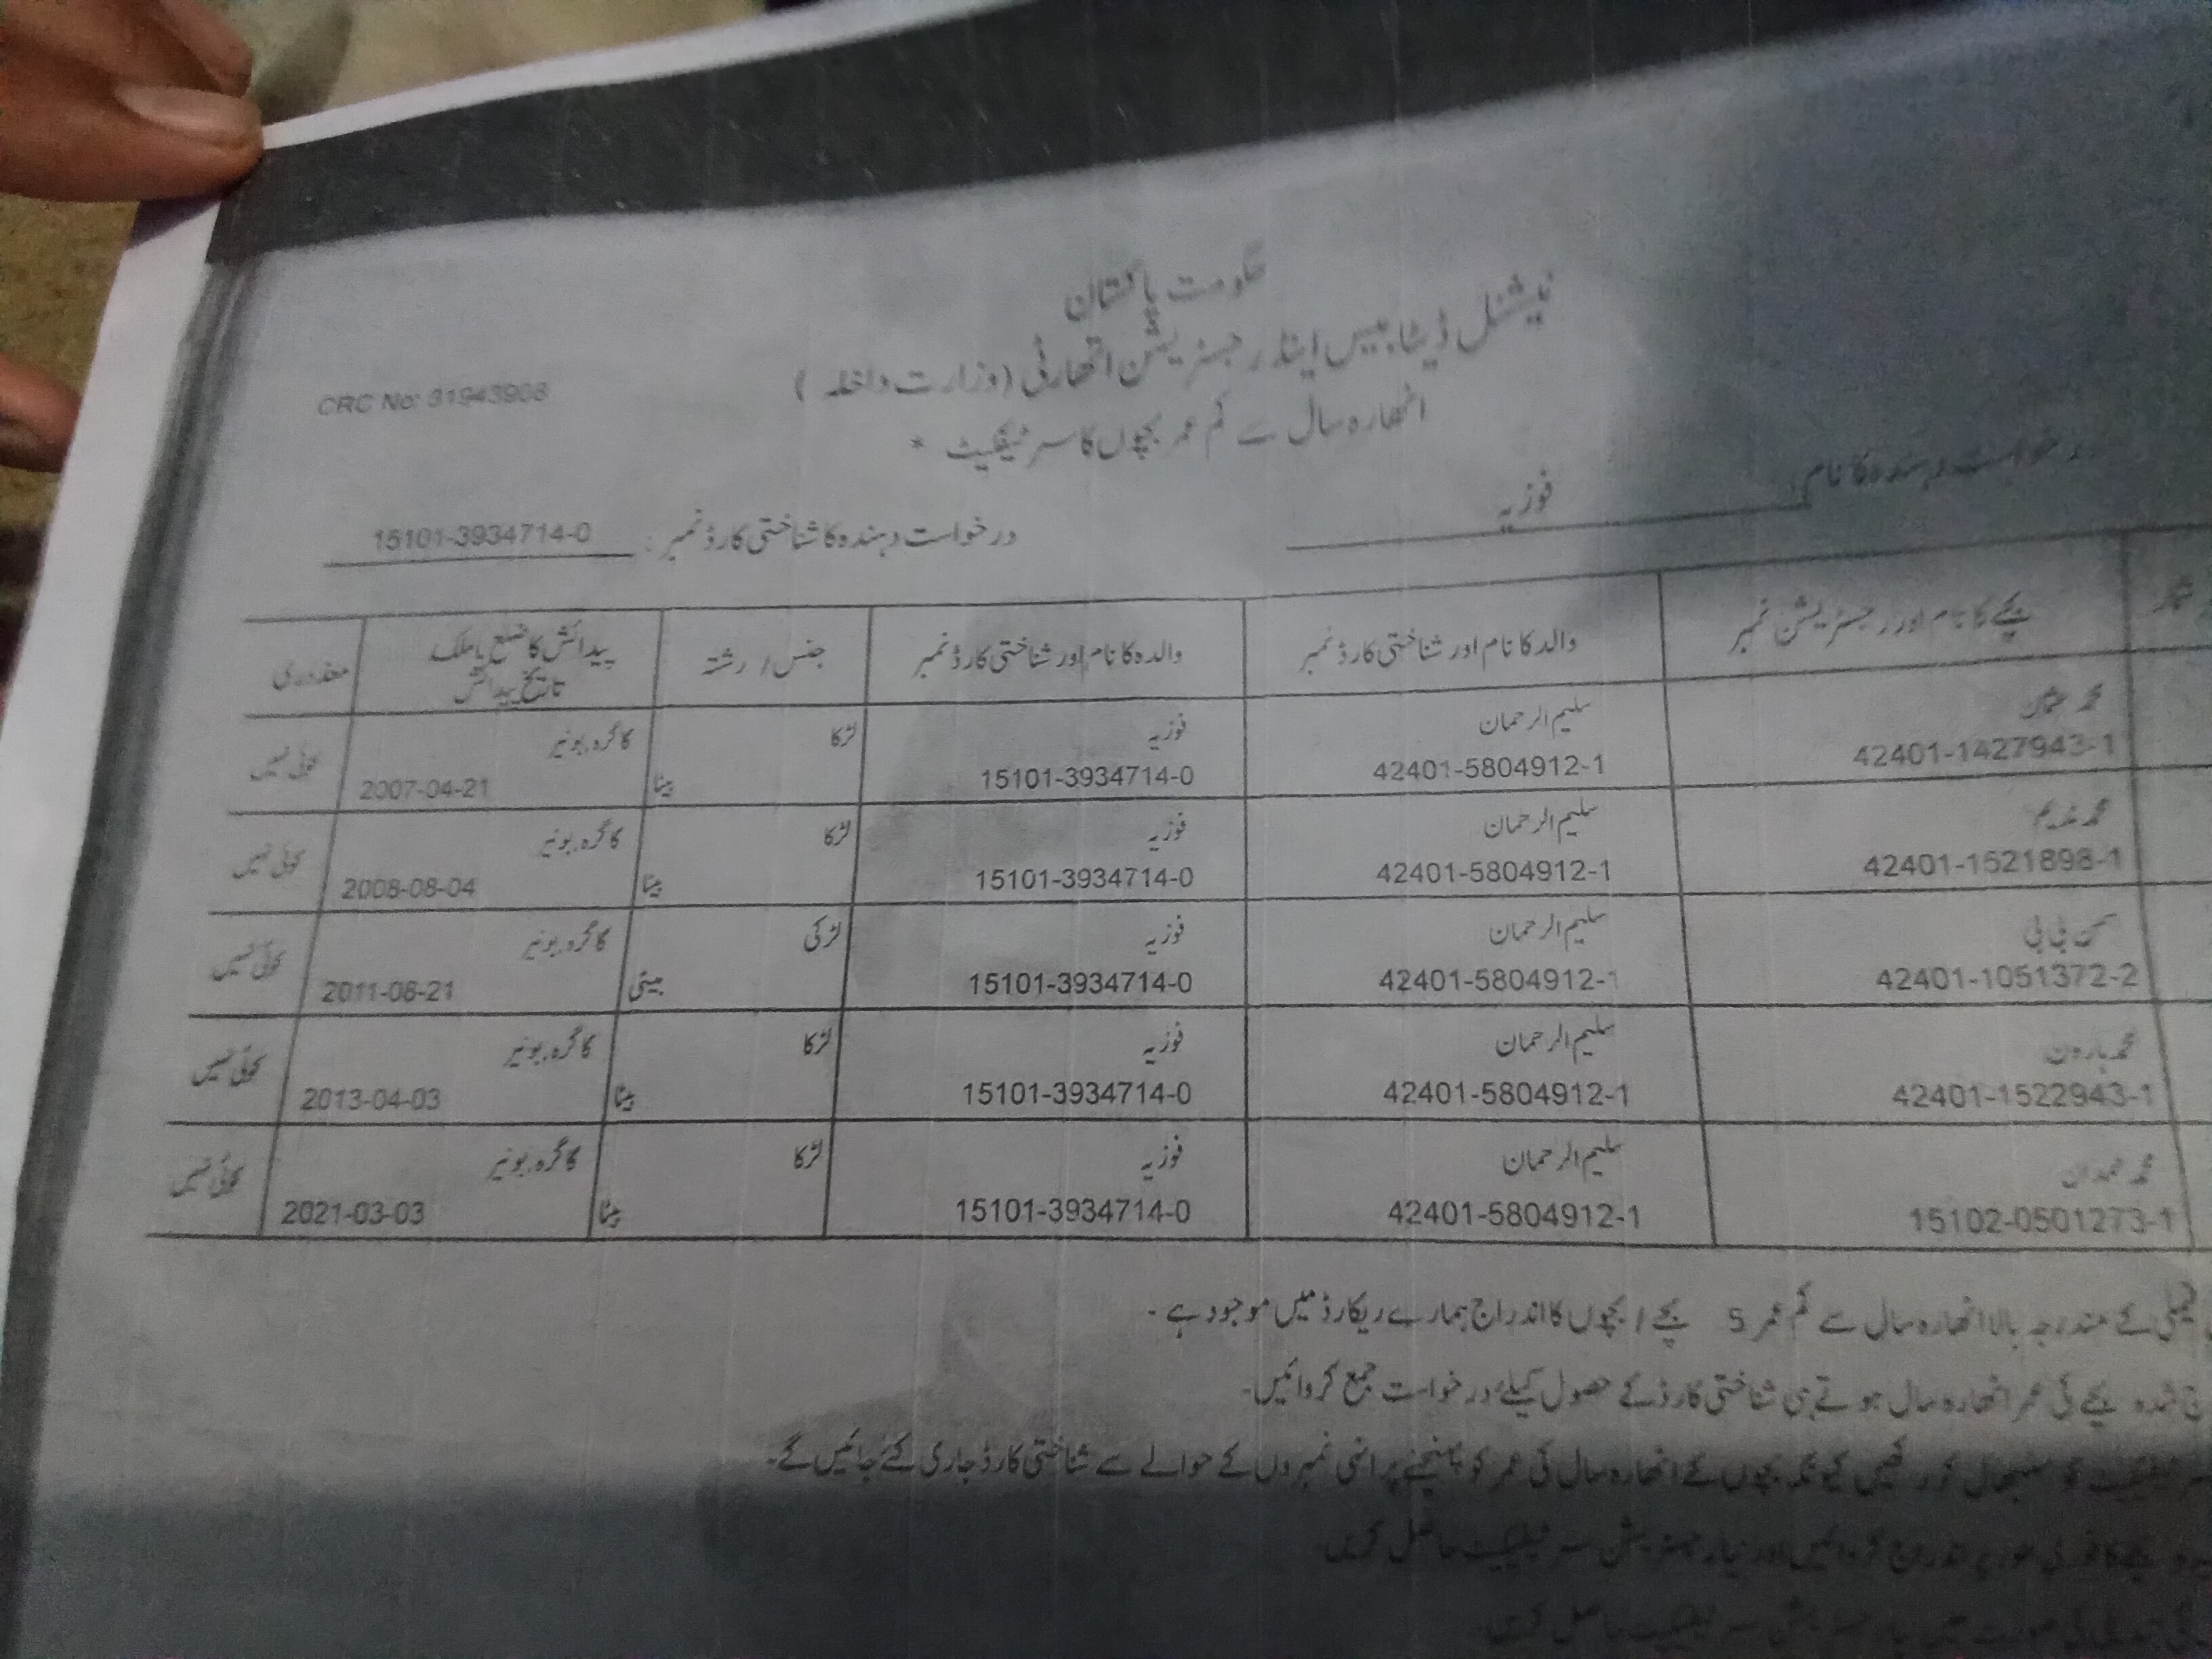 حکومت پاکستان
نیشنل ڈیٹا بیس اینڈ رجسٹریشن اتھارٹی (وزارت داخلہ)
CRC No:
اٹھارہ سال سے کم عمر بچوں کا سرٹیفکیٹ *
درخواست دہندہ کا نام: فوزیہ
درخواست دہندہ کا شناختی کارڈ نمبر: 15101-3934714-0
بچے کا نام اور رجسٹریشن نمبر والد کا نام اور شناختی کارڈ نمبر والدہ کا نام اور شناختی کارڈ نمبر جنس / رشتہ پیدائش کا ضلع یا ملک معذوری
تاریخ پیدائش
محمد عثمان سلیم الرحمان فوزیہ لڑکا کاگرہ، بونیر کوئی نہیں
42401-1427943-1 42401-5804912-1 15101-3934714-0 بیٹا 2007-04-21
محمد ندیم سلیم الرحمان فوزیہ لڑکا کاگرہ، بونیر کوئی نہیں
42401-1521898-1 42401-5804912-1 15101-3934714-0 بیٹا 2008-08-04
بی بی سلیم الرحمان فوزیہ لڑکی کاگرہ، بونیر کوئی نہیں
42401-1051372-2 42401-5804912-1 15101-3934714-0 بیٹی 2011-08-21
محمد ہارون سلیم الرحمان فوزیہ لڑکا کاگرہ، بونیر کوئی نہیں
42401-1522943-1 42401-5804912-1 15101-3934714-0 بیٹا 2013-04-03
محمد حمدان سلیم الرحمان فوزیہ لڑکا کاگرہ، بونیر کوئی نہیں
15102-0501273-1 42401-5804912-1 15101-3934714-0 بیٹا 2021-03-03
فیملی کے مندرجہ بالا اٹھارہ سال سے کم عمر 5 بچے / بچوں کا اندراج ہمارے ریکارڈ میں موجود ہے۔
شدہ بچے کی عمر اٹھارہ سال ہوتے ہی شناختی کارڈ کے حصول کیلئے درخواست جمع کروائیں۔
سنبھال کر رکھیں کیونکہ بچوں کے اٹھارہ سال کی عمر کو پہنچنے پر انہی نمبروں کے حوالے سے شناختی کارڈ جاری کئے جائیں گے۔
بچے کا فوری طور پر اندراج کروائیں اور نیا رجسٹریشن سرٹیفکیٹ حاصل کریں۔
کی صورت میں نیا رجسٹریشن سرٹیفکیٹ حاصل کریں۔